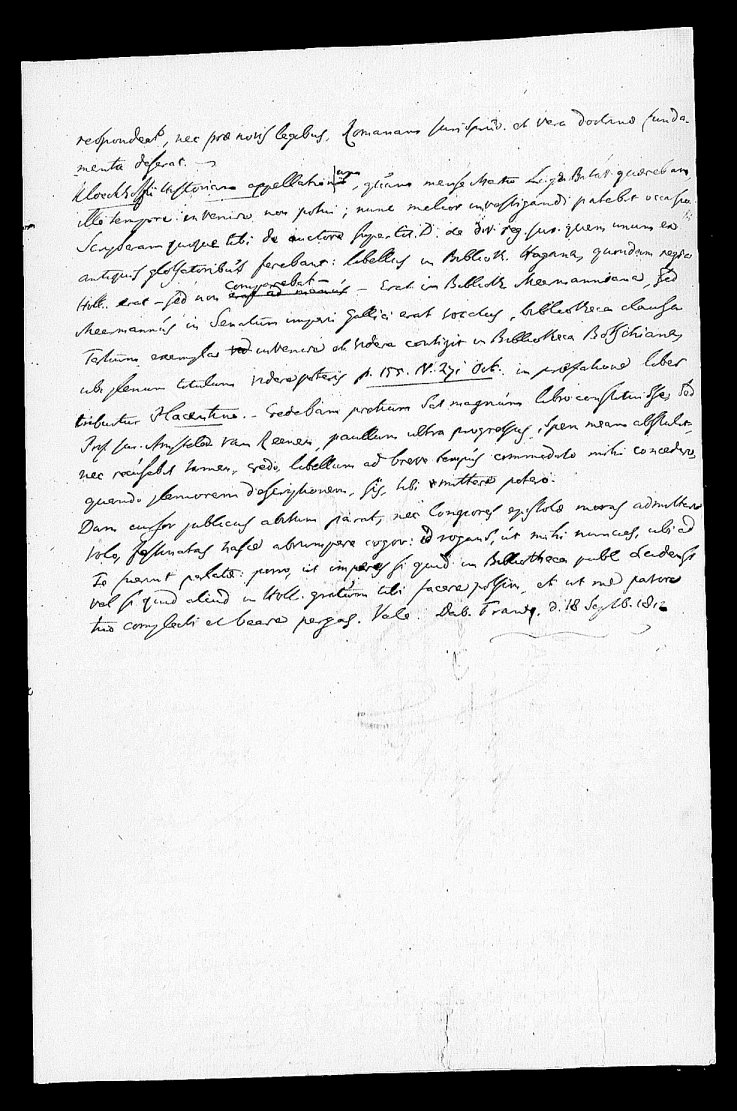 respondeat, nec præ novis legibus, Romanam jurisprud. et vera doctrinæ funda-
menta deserat. —
Kloeckhoffii historiam appellationum, quam mense Martio Lugd. Batav. quærebam
illo tempore invenire non potui; nunc melior investigandi patebit occasio
Scripseram quoque tibi de auctore super tit. D. de div. reg. jur. quem unum ex
antiquis glossatoribus ferebant: libellus in Biblioth. Hagana, quondam regia
Holl. erat — sed non comparebat — Erat in Biblioth. Meermanniana, sed
Meermannus in Senatum imperii Gallici erat vocatus, bibliotheca clausa
Tertium exemplar invenire et videre contigit in Bibliotheca Bosschiana,
ubi plenum titulum videre poteris p. 155. N. 271 Oct. in præfatione liber
tribuitur Placentino. — Credebam pretium sat magnum libro constituisse, sed
Prof. jur. Amstelod. van Reenen, paullum ultra progressus, spem meam abstulit,
nec recusabit tamen, credo, libellum ad breve tempus commodato mihi concedere,
quando pleniorem descriptionem, sis, tibi mittere potero.
Dum cursor publicus abitum parat, nec longiores epistolæ moras admittere
volo, festinatas hasce abrumpere cogor: id rogans, ut mihi nuncies, ubi ad
Te fuerint perlatæ: porro, ut imperes si quid in Bibliotheca publ. Leidensi
vel si quid aliud in Holl. gratum tibi facere possim, et ut me favore
tuo complecti et beare pergas. Vale. Dab. Franeq. d. 18 Septb. 1812